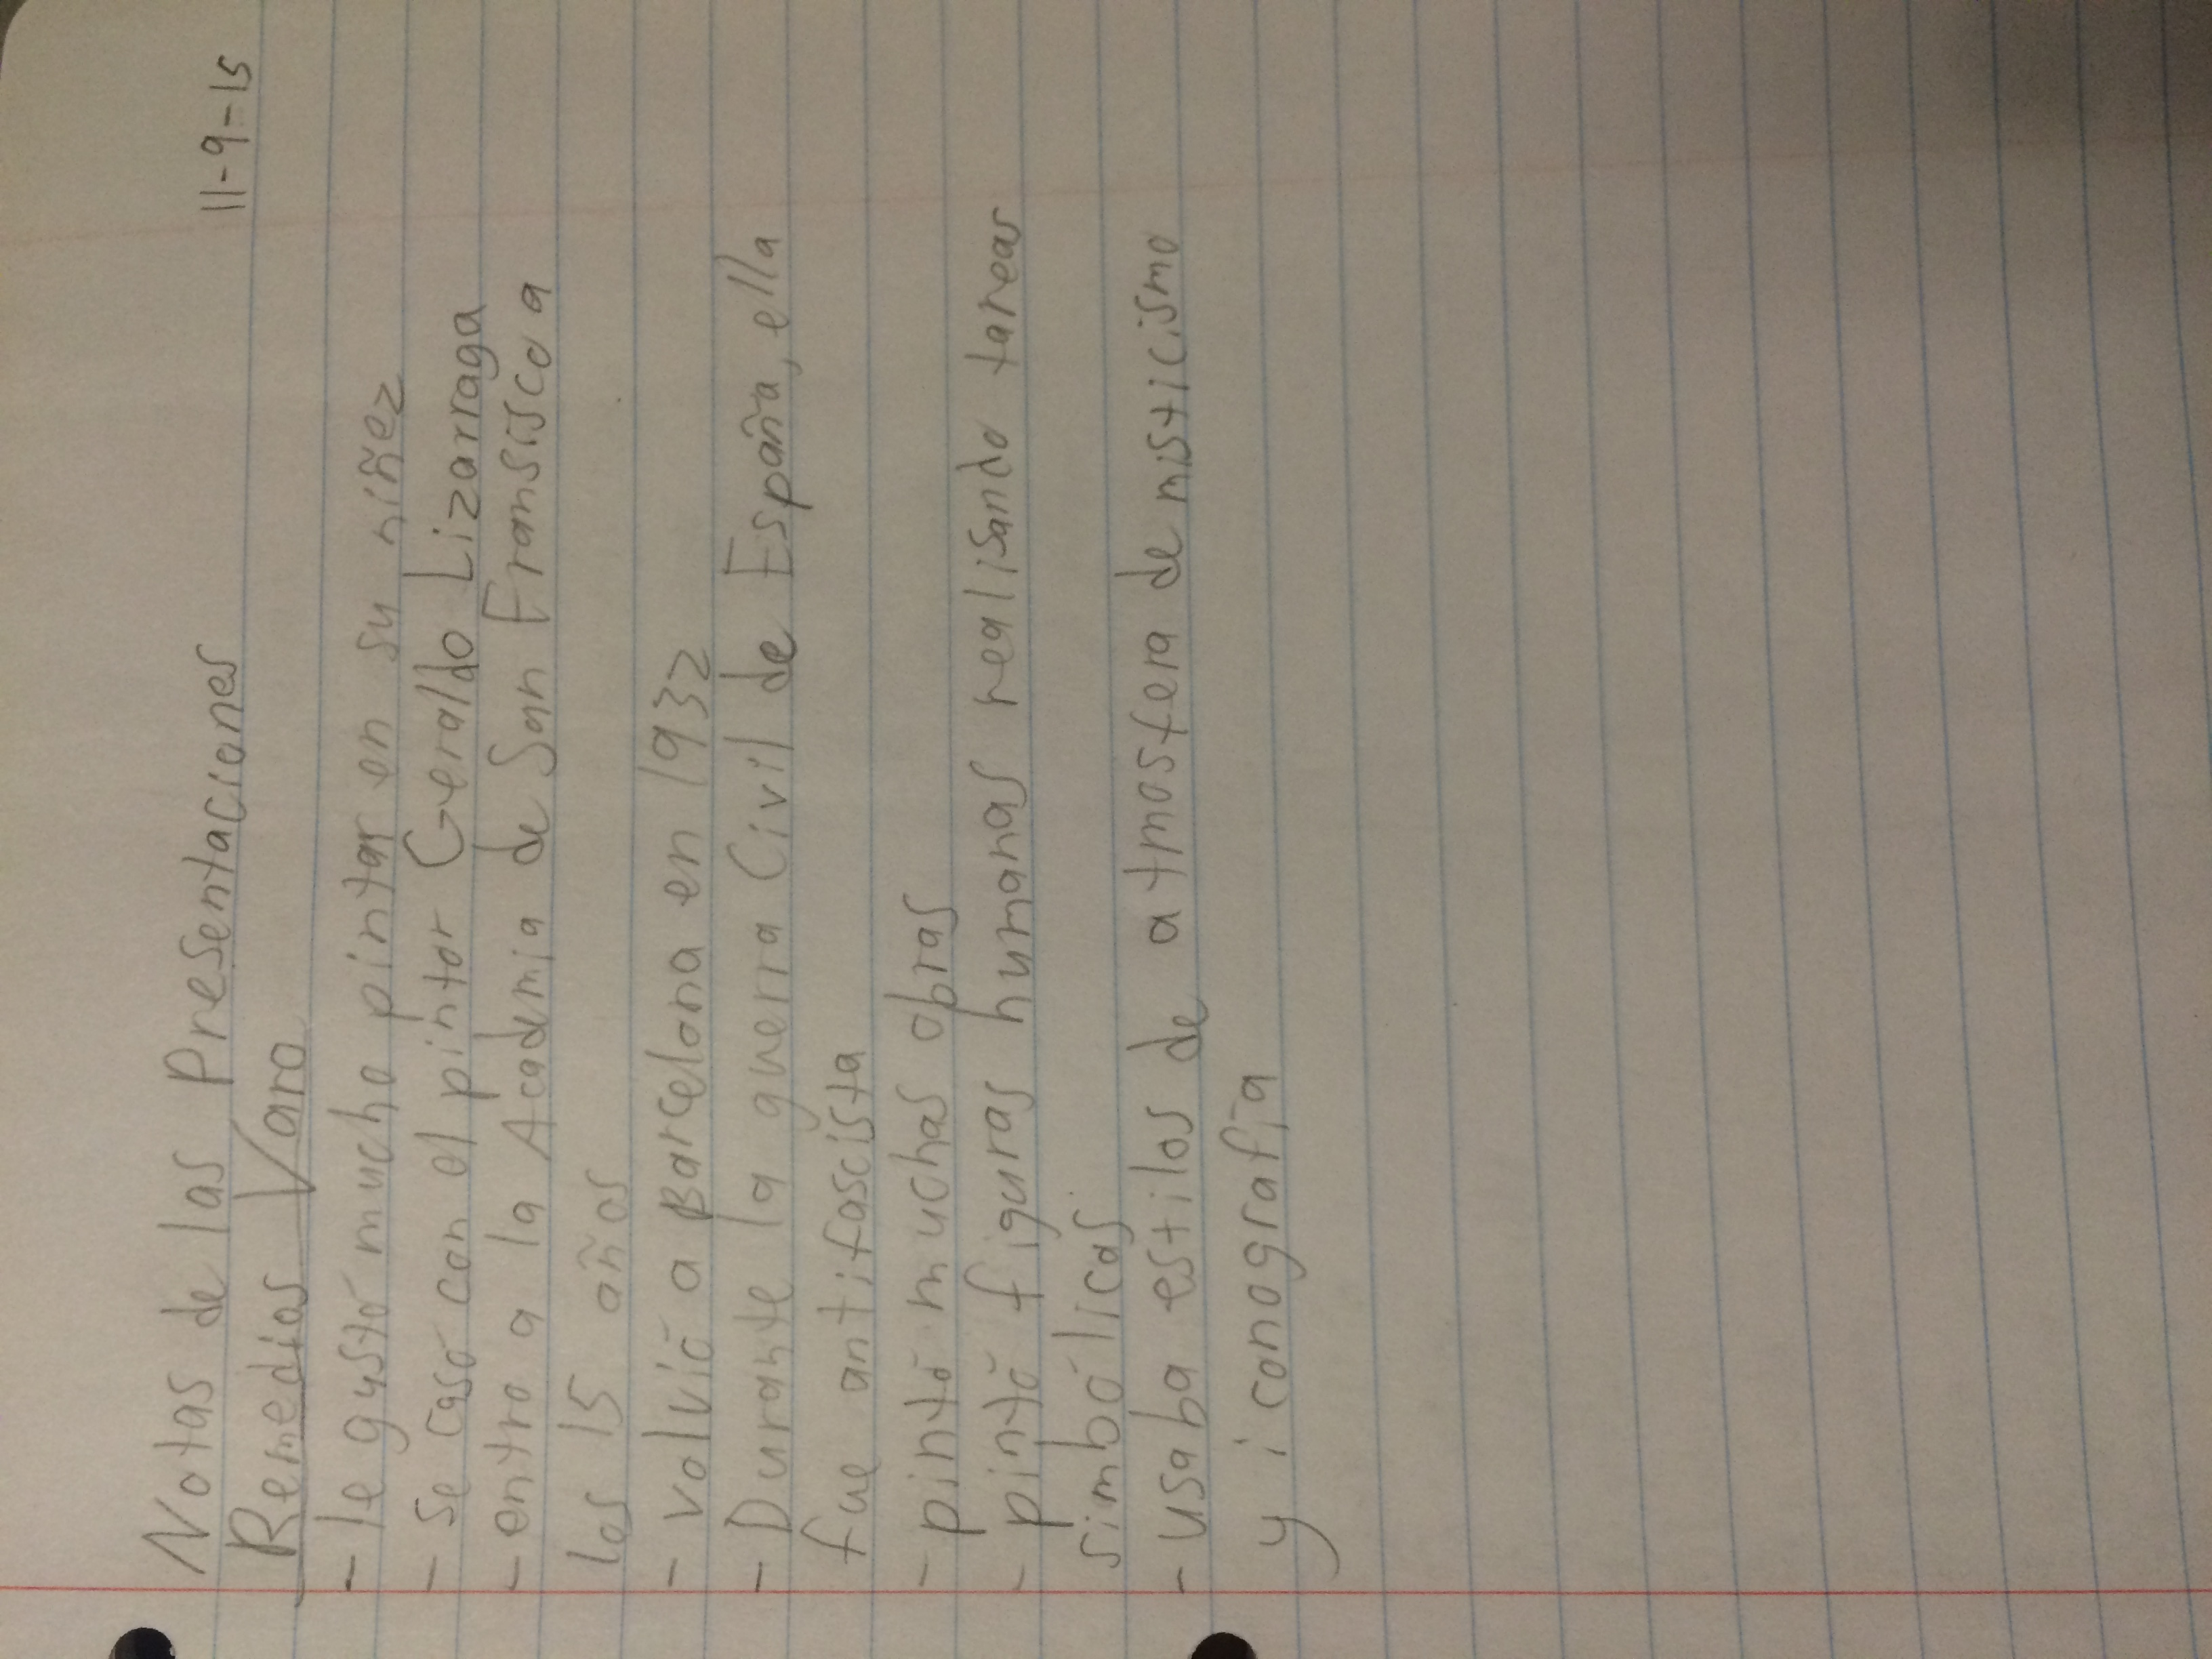 11-9-15
Notas de las Presentaciones
Remedios Varo
- le gustó mucho pintar en su niñez
- se casó con el pintor Geraldo Lizarraga
- entro a la Academia de San Fransisco a
los 15 años
- volvió a Barcelona en 1932
- Durante la guerra Civil de España, ella
fue antifascista
- pintó muchas obras
- pintó figuras humanas realisando tareas
simbólicas
- usaba estilos de atmosfera de misticismo
y iconografía